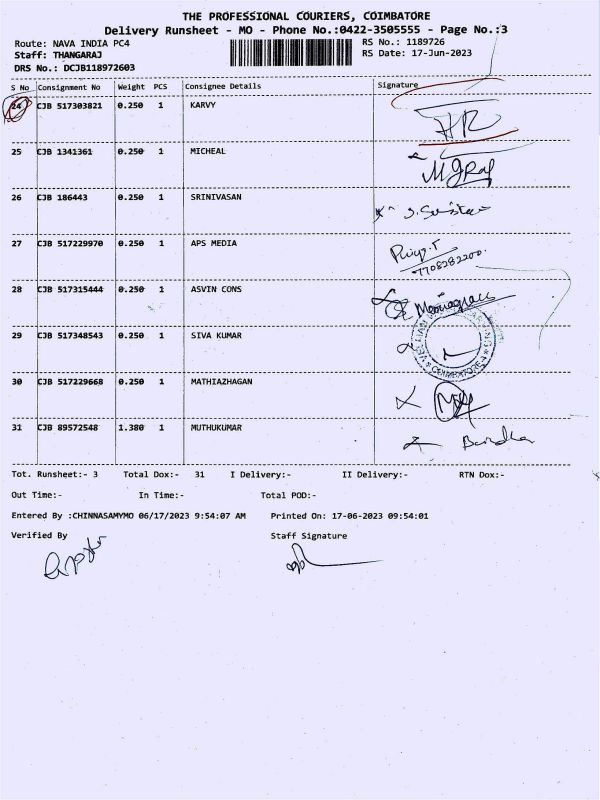 THE PROFESSIONAL COURIERS, COIMBATORE
Delivery Runsheet - MO - Phone No.:0422-3505555 - Page No.:3
Route: NAVA INDIA PC4 RS No.: 1189726
Staff: THANGARAJ RS Date: 17-Jun-2023
DRS No.: DCJB118972603
S No Consignment No Weight PCS Consignee Details Signature
24 CJB 517303821 0.250 1 KARVY
25 CJB 1341361 0.250 1 MICHEAL
26 CJB 186443 0.250 1 SRINIVASAN
27 CJB 517229970 0.250 1 APS MEDIA
7708282200
28 CJB 517315444 0.250 1 ASVIN CONS
29 CJB 517348543 0.250 1 SIVA KUMAR
COIMBATORE
30 CJB 517229668 0.250 1 MATHIAZHAGAN
31 CJB 89572548 1.380 1 MUTHUKUMAR
Tot. Runsheet:- 3 Total Dox:- 31 I Delivery:- II Delivery:- RTN Dox:-
Out Time:- In Time:- Total POD:-
Entered By :CHINNASAMYMO 06/17/2023 9:54:07 AM Printed On: 17-06-2023 09:54:01
Verified By Staff Signature